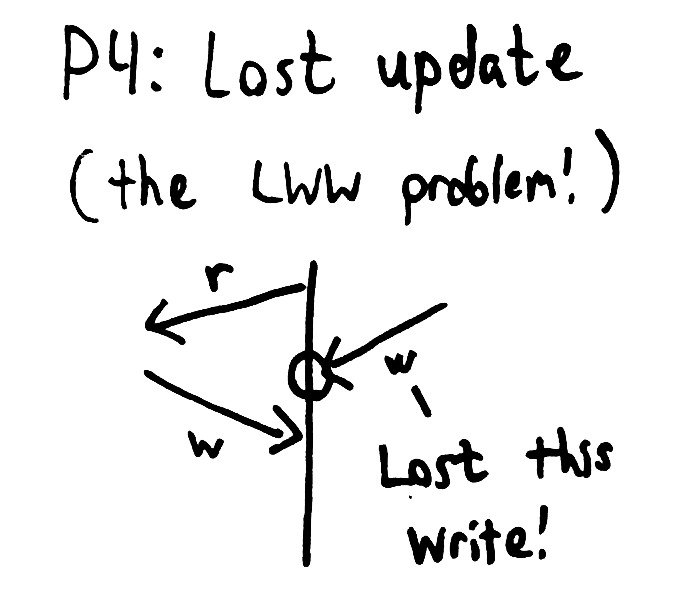 P4: Lost update
(the LWW problem!)
r
w
w
Lost this
write!